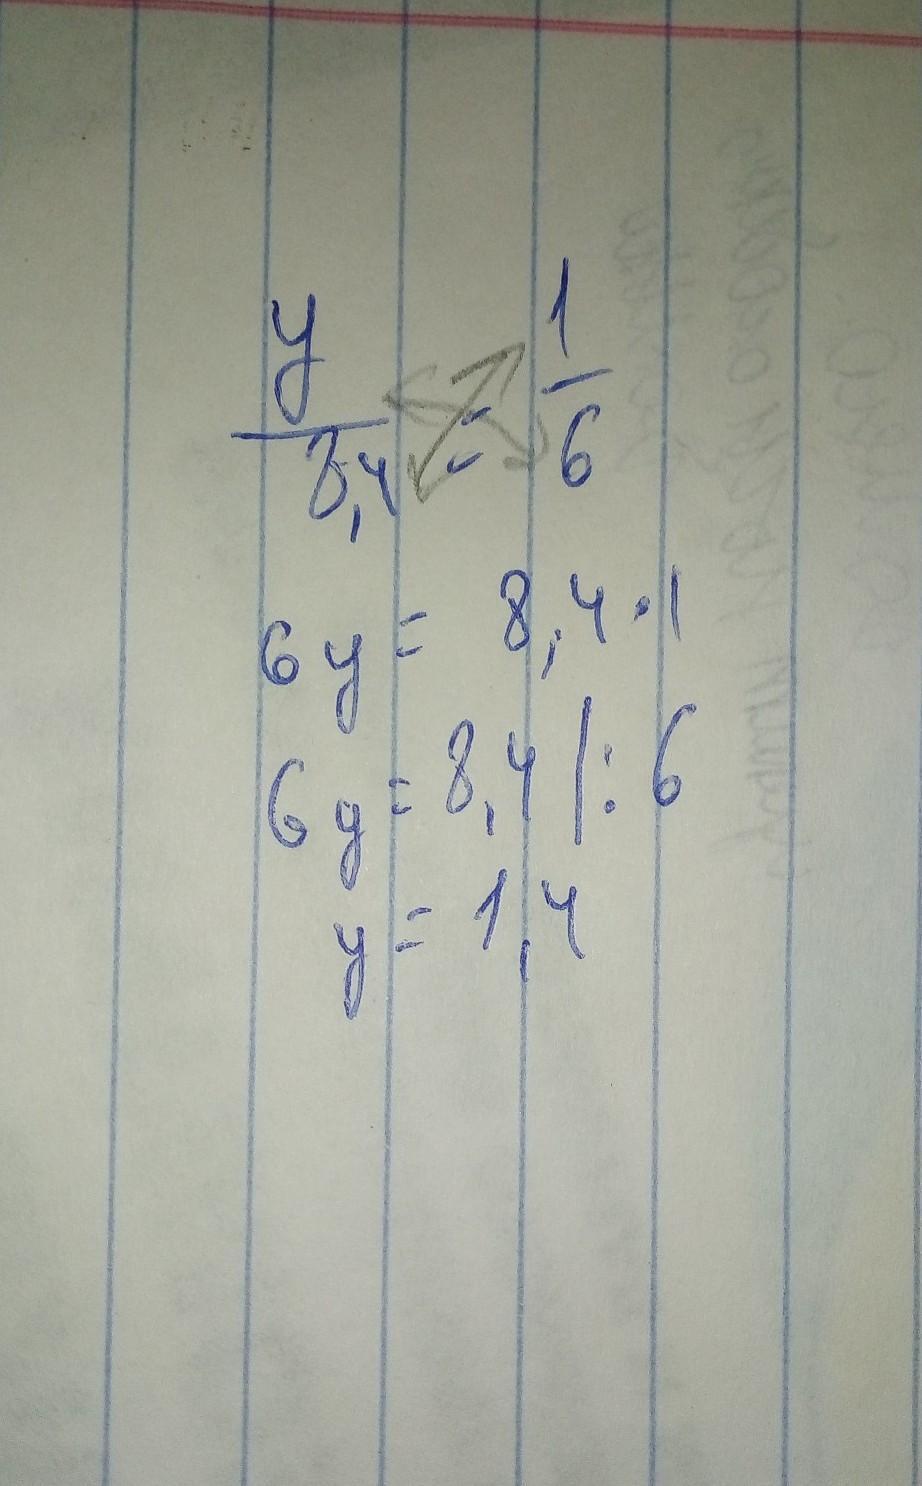 y/8,4 = 1/6
6y = 8,4 · 1
6y = 8,4 |: 6
y = 1,4